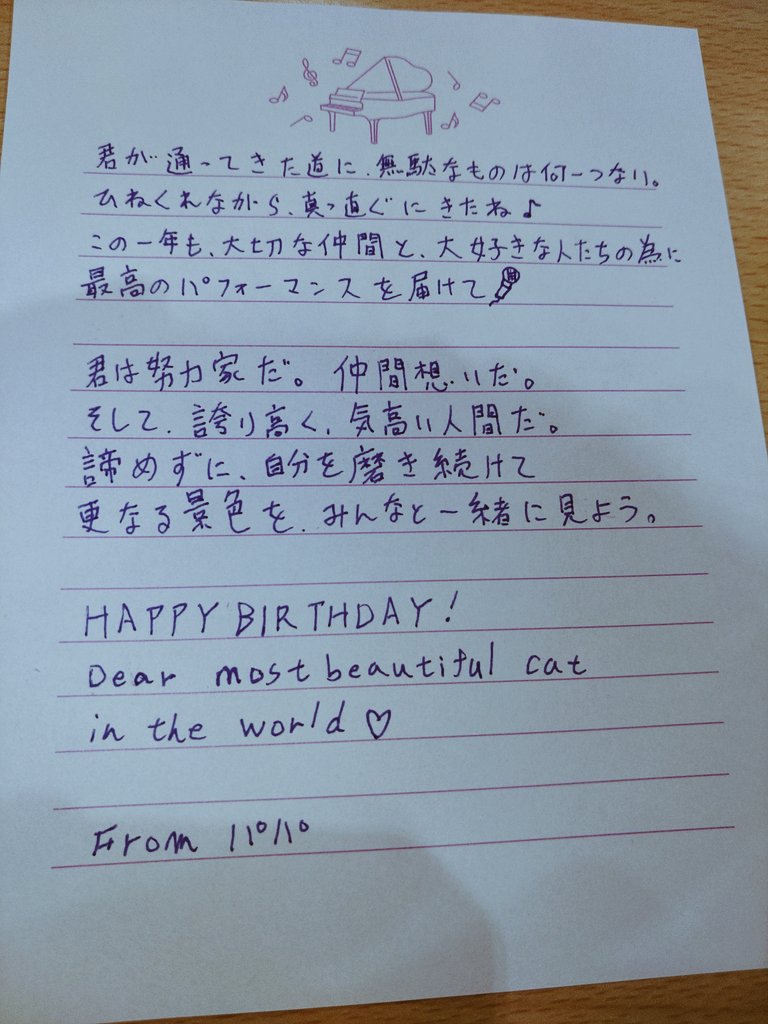 君が通ってきた道に、無駄なものは何一つない。
ひねくれながら、真っ直ぐにきたね♪
この一年も、大切な仲間と、大好きな人たちの為に
最高のパフォーマンスを届けて🎤
君は努力家だ。仲間想いだ。
そして、誇り高く、気高い人間だ。
諦めずに、自分を磨き続けて
更なる景色を、みんなと一緒に見よう。
HAPPY BIRTHDAY!
Dear most beautiful cat
in the world ♡
From パパ